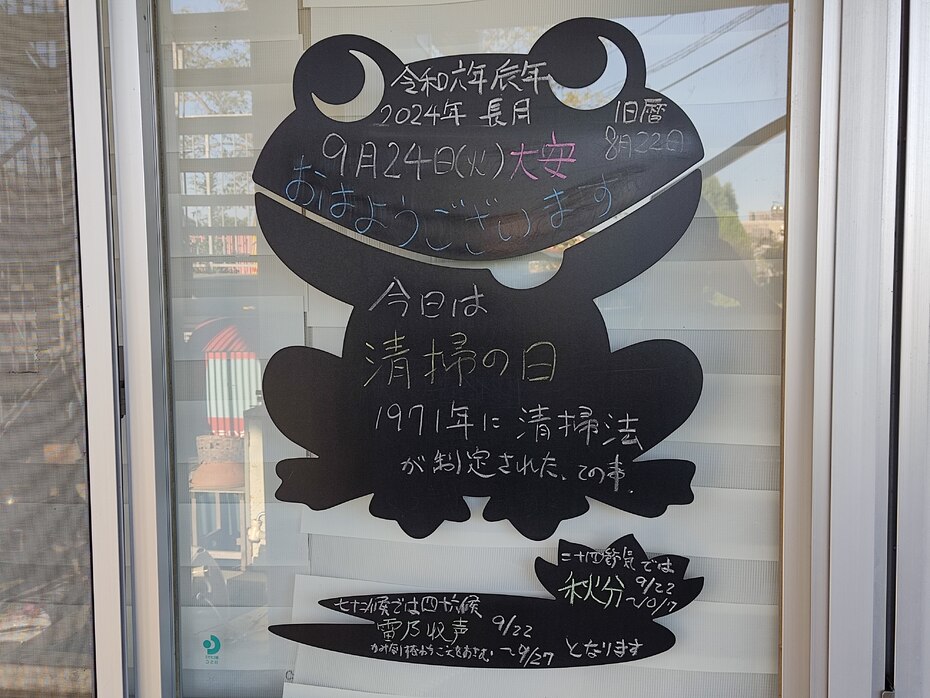 令和六年辰年
2024年 長月
旧暦
8月22日
9月24日(火)大安
おはようございます
今日は
清掃の日
1971年に清掃法
が制定された、との事.
二十四節気では
秋分 9/22
~10/7
七十二候では四十六候
雷乃収声 9/22
かみなりすなわちこえをおさむ ~9/27
となります